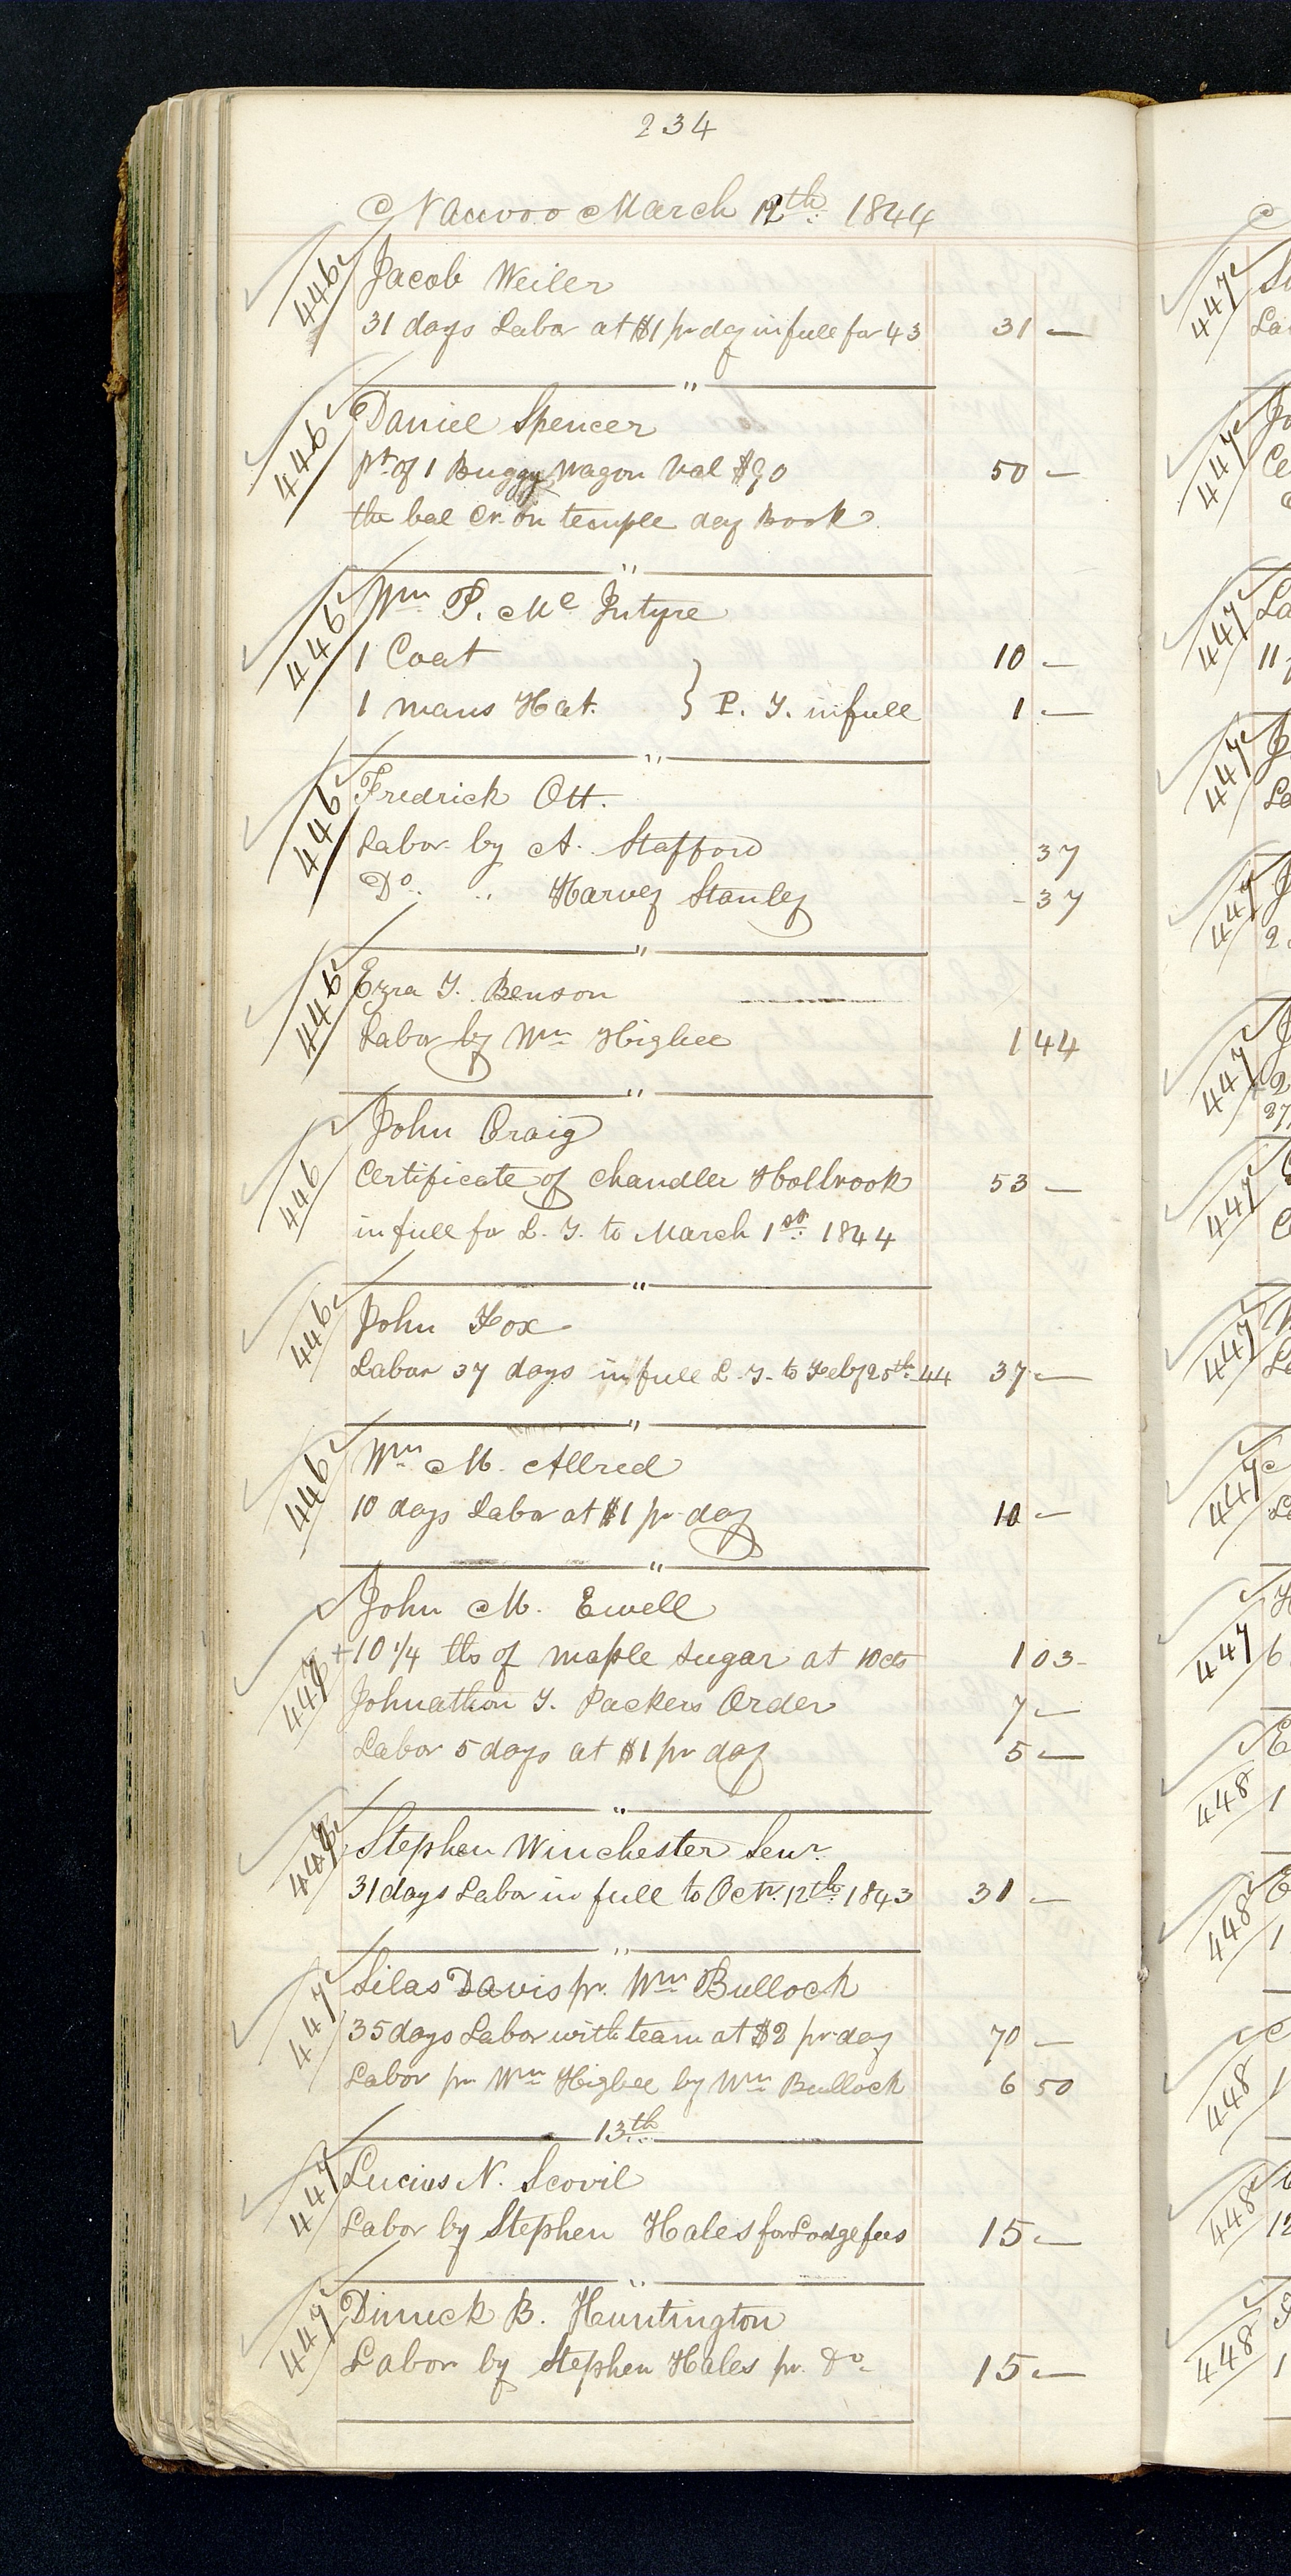 234
Nauvoo March 12th 1844
446 Jacob Weiler
31 days Labor at $1 pr day in full for 43 31 —
"
446 Daniel Spencer
pt of 1 Buggy Wagon Val $90 50 —
the bal Cr. on temple day Book
"
446 Wm P. Mc Intyre
1 Coat 10 —
1 mans Hat. } P. T. in full 1 —
"
446 Fredrick Ott.
Labor by A. Stafford 37
Do. " Harvey Stanley - 37
"
446 Ezra T. Benson
Labor by Wm Higbee 1 44
"
446 John Craig
Certificate of Chandler Holbrook 53 —
in full for L. T. to March 1st 1844
"
446 John Fox
Labor 37 days in full L. T. to Feby 25th 44 37 —
"
446 Wm M. Allred
10 days Labor at $1 pr day 10 —
"
John M. Ewell
+ 10 1/4 lbs of maple sugar at 10cts 1 03 -
447 Johnathon T. Packers Order 7 —
Labor 5 days at $1 pr day 5 —
"
447 Stephen Winchester Senr.
31 days Labor in full to Octr. 12th 1843 31 —
"
447 Silas Davis pr. Wm Bullock
35 days Labor with team at $2 pr day 70 —
Labor pr Wm Higbee by Wm Bullock 6 50
13th
447 Lucius N. Scovil
Labor by Stephen Hales for Lodge fees 15 —
"
447 Dimick B. Huntington
Labor by Stephen Hales pr. do. 15 —
447
447
447
447
447
447
447
447
447
447
448
448
448
448
448